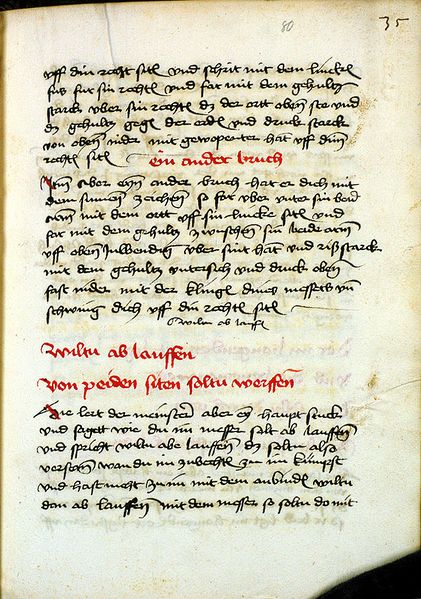 80 35
vff din recht sitñ vnd schrit mit dem lincken
fus fur sin rechtñ vnd far mit dem gehultz
starck vber sin rechtñ dz der ortt oben ste vnd
dz gehultz gegñ der erdñ vnd druck starck
von oben nider mit gewopenter hat vff dinn
rechtñ sitñ ein ander bruch
Itm̃ Aber eyn̄ ander bruch hat er dich mit
dem so far vber vnter sin beid
arm̄ mit dem ortt vff sin lincke sitñ vnd
far mit dem gehultz zwischen sin beide arm̄
vff oben Inwendig vber sint hat vnd riß starck
mit dem gehultz vntersich vnd druck oben
fast nider mit der klingñ dines messers vn̄
schwing dich vff din rechtñ sitñ
Wiltu ab lauffñ
Wiltu ab lauffen
von peiden siten soltu werffen
Hie lert der meinster aber eyn haupt stuck
vnd sagett wie du im messer solt ab lauffen̄
vnd spricht wiltu abe lauffen̄ dz soltu also
versten̄ wan du im zuvechtñ zu im kumpst
vnd hast nicht zu im mit dem anbindñ wiltu
dan ab lauffen̄ mit dem messer so soltu do mit